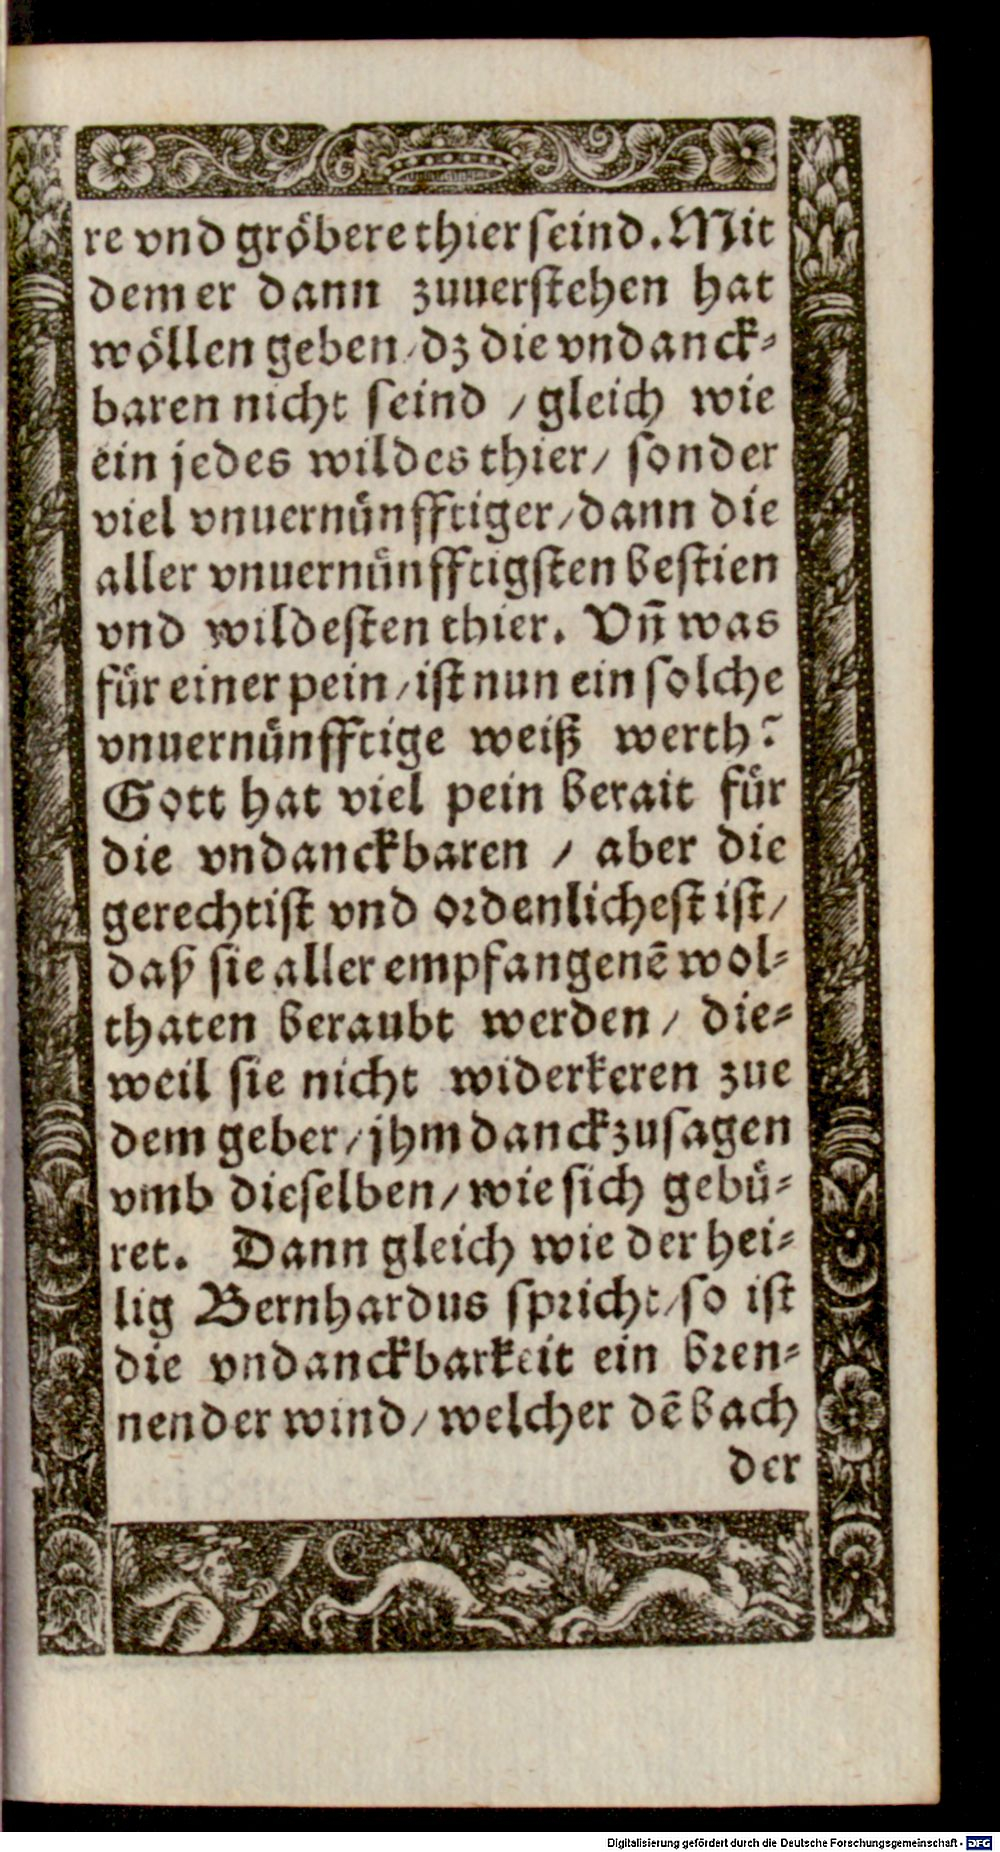 re vnd gröbere thier seind. Mit
dem er dann zuuerstehen hat
wöllen geben / dz die vndanck-
baren nicht seind / gleich wie
ein jedes wildes thier / sonder
viel vnuernünfftiger / dann die
aller vnuernünfftigsten bestien
vnd wildesten thier. Vñ was
für einer pein / ist nun ein solche
vnuernünfftige weiß werth?
Gott hat viel pein berait für
die vndanckbaren / aber die
gerechtist vnd ordenlichest ist /
daß sie aller empfangenẽ wol-
thaten beraubt werden / die-
weil sie nicht widerkeren zue
dem geber / jhm danckzusagen
vmb dieselben / wie sich gebü-
ret. Dann gleich wie der hei-
lig Bernhardus spricht / so ist
die vndanckbarkeit ein bren-
nender wind / welcher dẽ bach
der
Digitalisierung gefördert durch die Deutsche Forschungsgemeinschaft - DFG